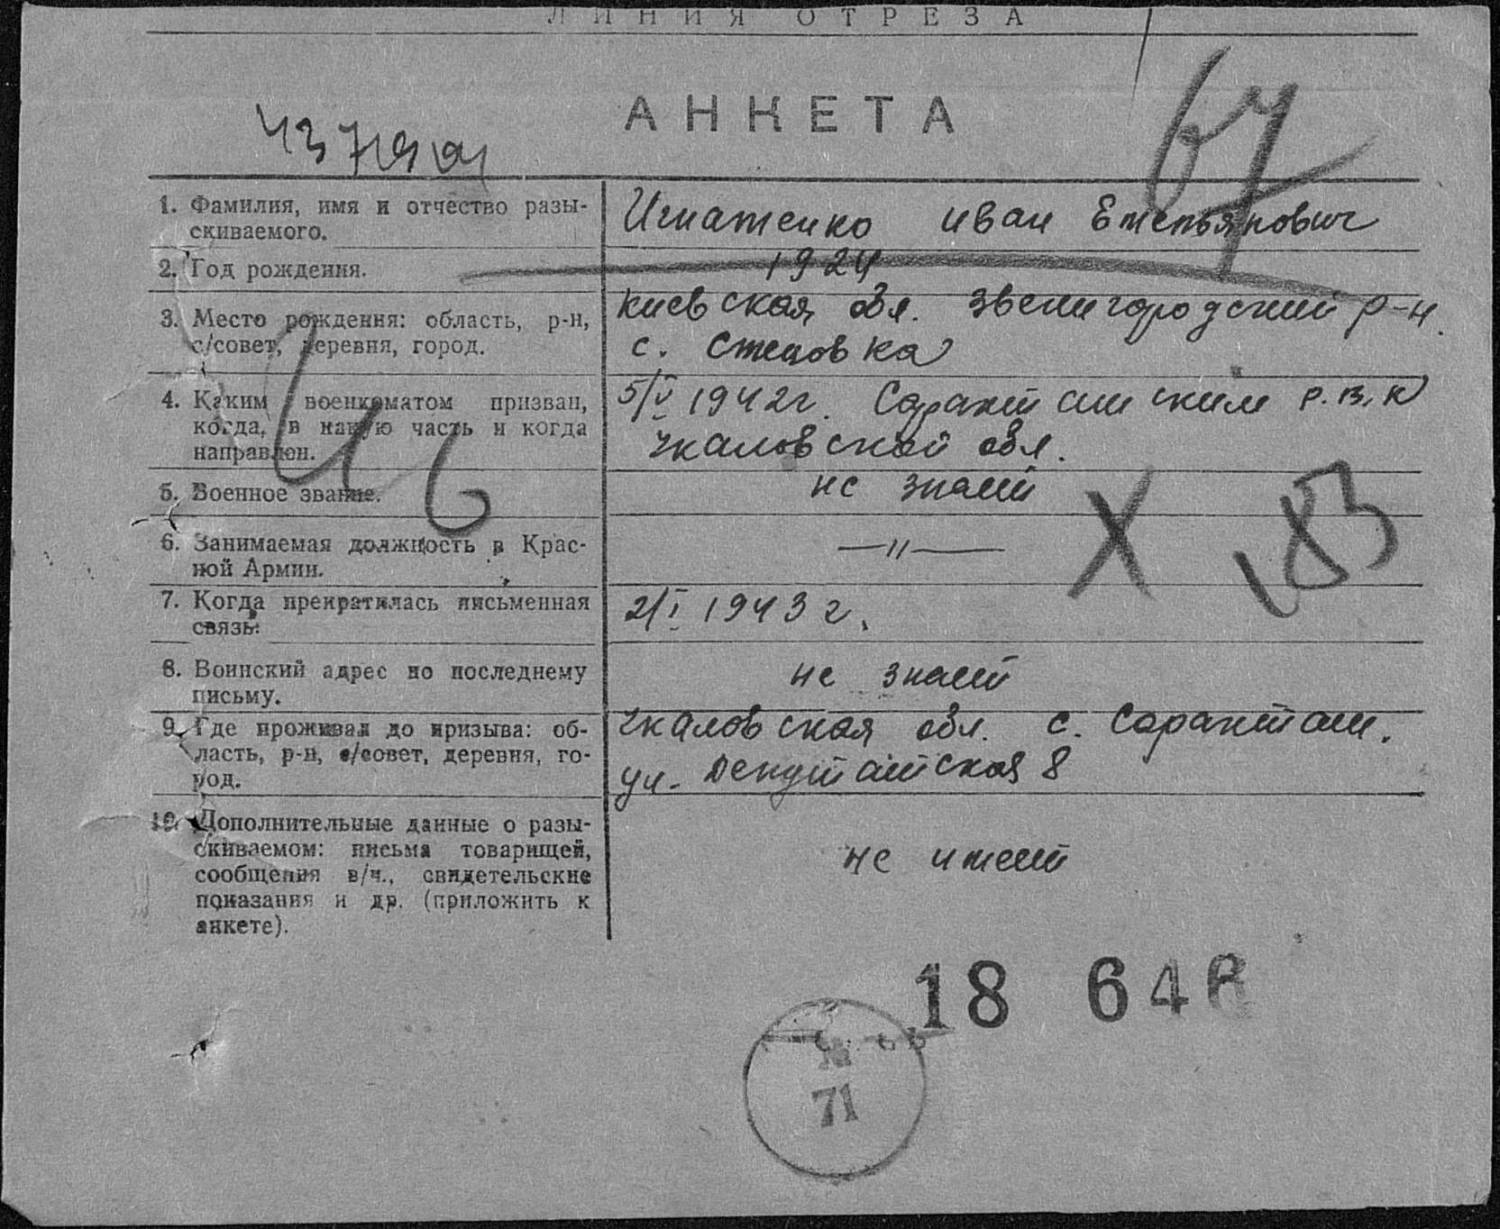 ЛИНИЯ ОТРЕЗА
АНКЕТА
67
1. Фамилия, имя и отчество разы-
скиваемого.
Игнатенко иван Емельянович
2. Год рождения.
1924
3. Место рождения: область, р-н,
с/совет, деревня, город.
Киевская обл. Звенигородский р-н.
с. Стецовка
4. Каким военкоматом призван,
когда, в какую часть и когда
направлен.
5/V 1942г. Саракташским р.в.к
Чкаловской обл.
5. Военное звание.
не знает
6. Занимаемая должность в Крас-
ной Армии.
—〃—
7. Когда прекратилась письменная
связь:
2/I 1943 г.
8. Воинский адрес по последнему
письму.
не знает
9. Где проживал до призыва: об-
ласть, р-н, с/совет, деревня, го-
род.
Чкаловская обл. с. Саракташ.
ул. Депутатская 8
10. Дополнительные данные о разы-
скиваемом: письма товарищей,
сообщения в/ч., свидетельские
показания и др. (приложить к
анкете).
не имеет
X 183
18 646
71